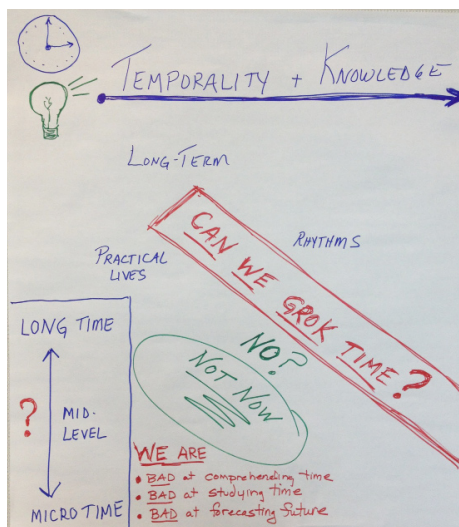 TEMPORALITY + KNOWLEDGE
LONG-TERM
RHYTHMS
PRACTICAL
LIVES
CAN WE GROK TIME?
NO?
NOT NOW
LONG TIME
?
MID-
LEVEL
MICRO TIME
WE ARE
• BAD at comprehending time
• BAD at studying time
• BAD at forecasting future